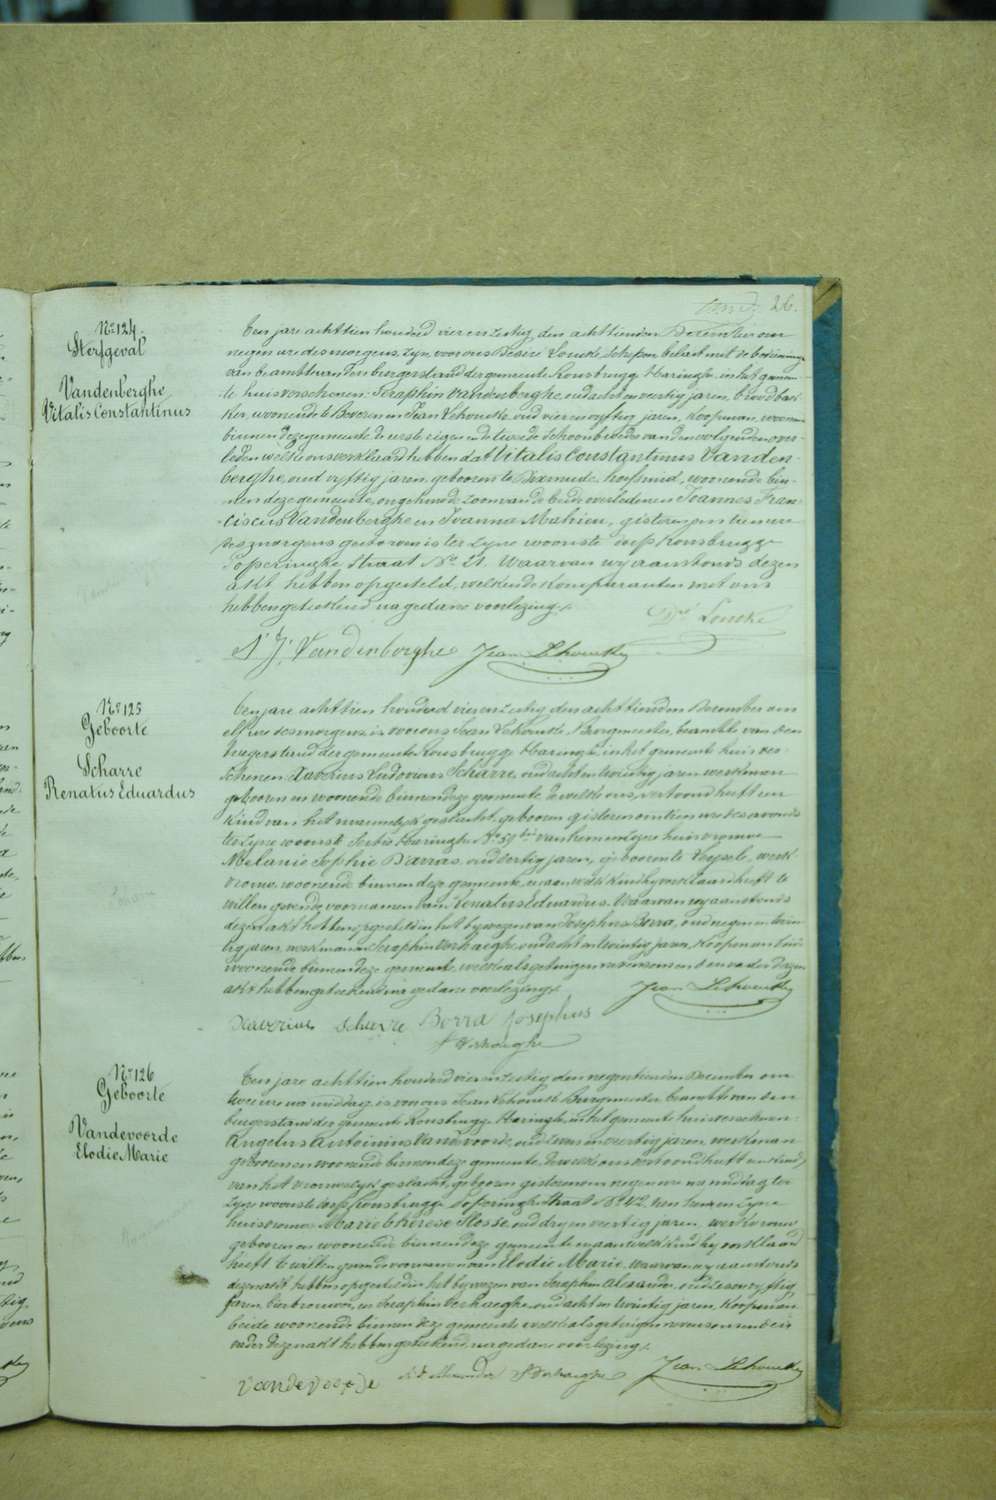 26.
N° 124.
Sterfgeval
Vandenberghe
Vitalis Constantinus
Ten jare achttien honderd vier en zestig den achttienden December om
negen ure des morgens, zijn voor ons Desiré Loncke Schepen belast met de bediening
van beambt van den burgerstand der gemeente Rousbrugge Haringhe, in het gemeen-
te huis verschenen Seraphin Vandenberghe, oud acht en veertig jaren, broodbak-
ker, woonende te Beveren en Jean Lehouck oud vier en vyftig jaren, koopman, woonen
binnen deze gemeente, de eerste eigen en de tweede schoonbroeder van den volgenden over-
leden welke ons verklaard hebben dat Vitalis Constantinus Vanden-
berghe, oud vyftig jaren, geboren te Dixmude, woonende bin-
nen deze gemeente, ongehuwde zoon van de beide overledenen Joannes Fran-
ciscus Vandenberghe en Joanna Mahieu, gisteren om ure
des morgens gestorven is ter zyne woonste dorp Rousbrugge
Poperinghe Straat N° 21. Waarvan wy aanstonds dezen
akt hebben opgesteld, welken de komparanten met ons
hebben geteekend na gedane voorlezing.
Dré Loncke
S. J. Vandenberghe Jean Lehouck
N° 125
Geboorte
Scharre
Renatus Eduardus
Ten jare achttien honderd vier en zestig den achttienden December om
elf ure des morgens, is voor ons Jean Lehouck Burgmeester, beambte van den
burgerstand der gemeente Rousbrugge Haringhe, in het gemeente huis ver-
schenen Xaverius Ludovicus Scharre, oud acht en twintig jaren werkman
geboren en woonende binnen deze gemeente, dewelke ons vertoond heeft een
kind van het mannelyk geslacht, geboren gisteren om tien ure des avonds
ter zyne woonste Haringhe N° 59 van hem en zyne huisvrouwe
Melanie Sophie oud dertig jaren, geboren te Leysele, werk-
vrouw, woonende binnen deze gemeente, waan welk kind hy verklaard heeft te
willen geven de voornamen van Renatus Eduardus. Waarvan wy aanstonds
dezen akt hebben opgesteld in het bywezen van Josephus Borra, oud negen en twin-
tig jaren, werkman en Seraphin Verhaeghe, oud acht en twintig jaren, koopman beide
woonende binnen deze gemeente, welke als getuigen nevens ons en den vader dezen
akt hebben geteekend na gedane voorlezing.
Jean Lehouck
Xaverius Scharre Borra Josephus
S Verhaeghe
N° 126
Geboorte
Vandevoorde
Elodie Marie
Ten jare achttien honderd vier en zestig den negentienden December om
twee ure na middag, is voor ons Jean Lehouck Burgmeester beambte van den
burgerstand der gemeente Rousbrugge Haringhe, in het gemeente huis verschenen
Angelus Antonius Vandevoorde, oud zeven en veertig jaren, werkman
geboren en woonende binnen deze gemeente, dewelke ons vertoond heeft een kind
van het vrouwelyk geslacht, geboren gisteren om negen ure na middag ter
zyne woonste dorp Rousbrugge Poperinghe Straat N° 42. van hem en zyne
huisvrouwe Marie Thérèse Flosse, oud dry en veertig jaren, werkvrouw
geboren en woonende binnen deze gemeente waan welk kind hy verklaard
heeft te willen geven de voornamen van Elodie Marie. waarvan wy aanstonds
dezen akt hebben opgesteld in het bywezen van Seraphin Alexander, oud zes en vyftig
jaren, bierbrouwer, en Seraphin Verhaeghe, oud acht en twintig jaren, koopman
beide woonende binnen deze gemeente welke als getuigen nevens ons en den
vader dezen akt hebben geteekend na gedane voorlezing.
Vandevoorde S. Alexander S Verhaeghe Jean Lehouck